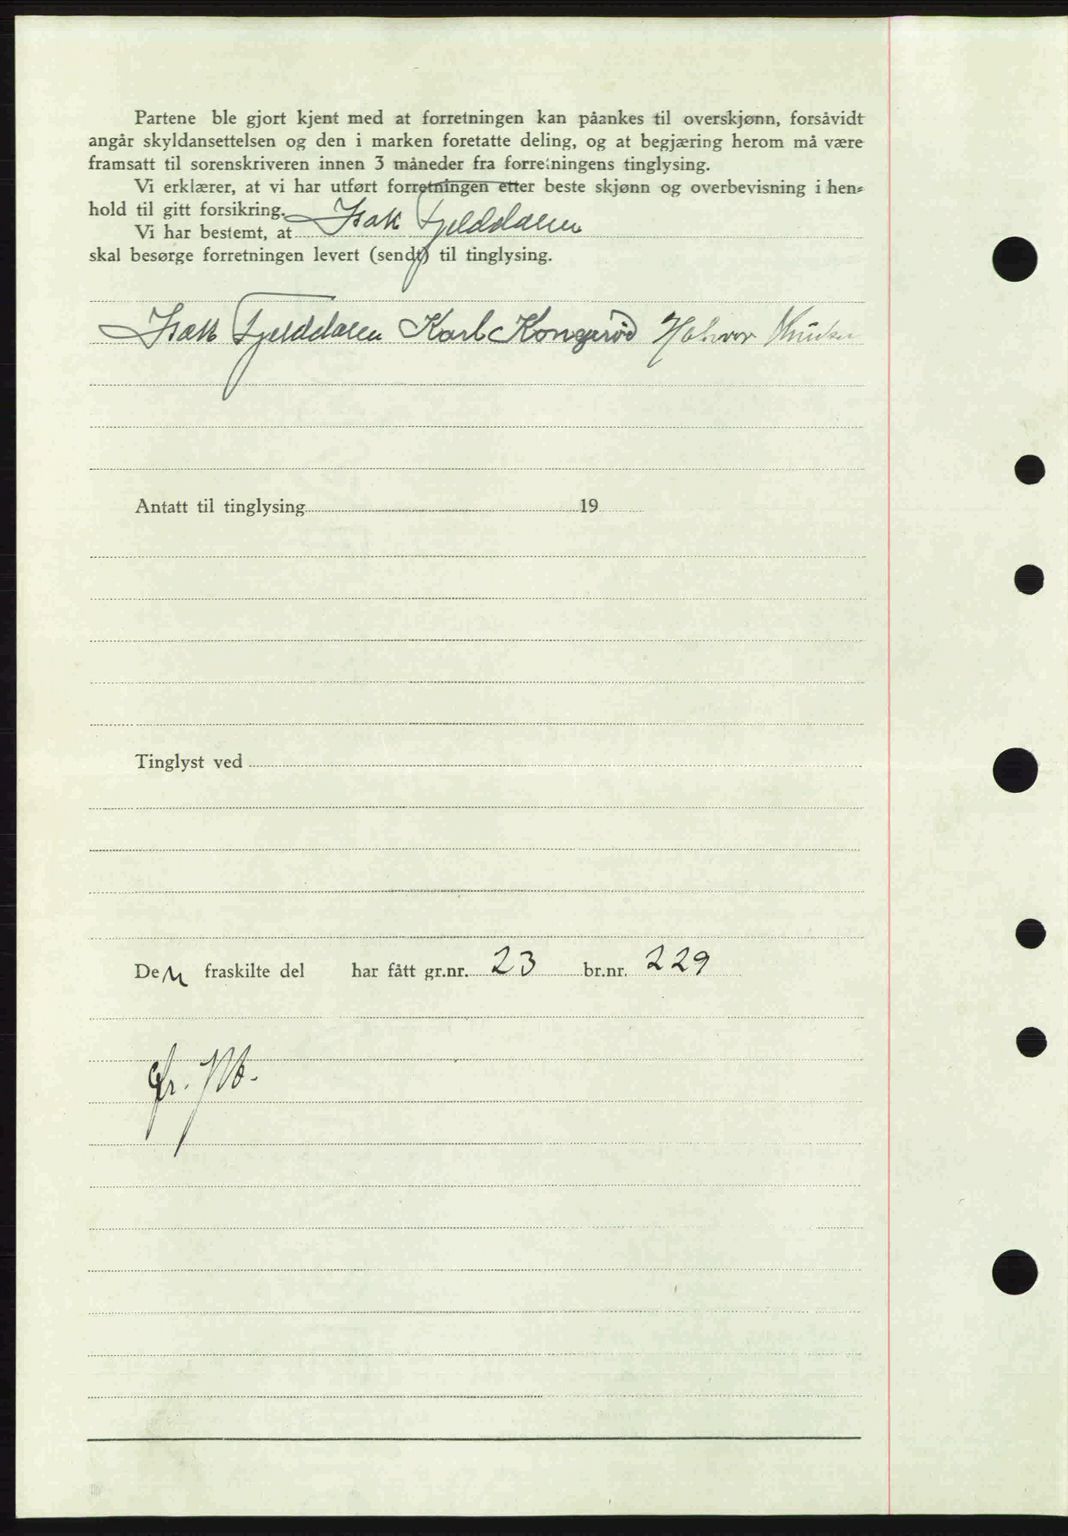 Partene ble gjort kjent med at forretningen kan påankes til overskjønn, forsåvidt
angår skyldansettelsen og den i marken foretatte deling, og at begjæring herom må være
framsatt til sorenskriveren innen 3 måneder fra forretningens tinglysing.
Vi erklærer, at vi har utført forretningen etter beste skjønn og overbevisning i hen=
hold til gitt forsikring.
Vi har bestemt, at Isak Fjelddalen
skal besørge forretningen levert (sendt) til tinglysing.
Isak Fjelddalen Karl Kongerød Halvor Knudsen
Antatt til tinglysing 19
Tinglyst ved
Den fraskilte del har fått gr.nr. 23 br.nr. 229